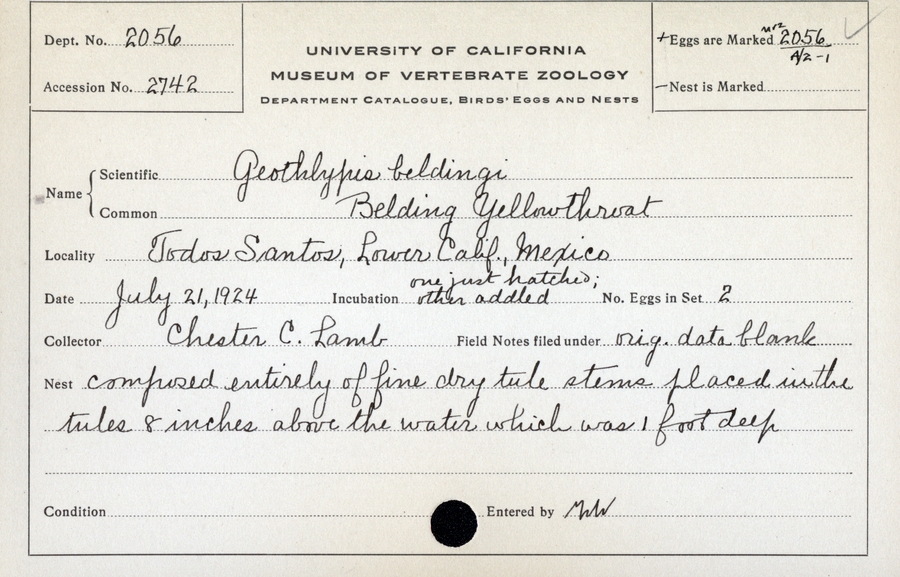 Dept. No. 2056
Accession No. 2742
UNIVERSITY OF CALIFORNIA
MUSEUM OF VERTEBRATE ZOOLOGY
DEPARTMENT CATALOGUE, BIRDS' EGGS AND NESTS
+Eggs are Marked 2056
A/2-1
—Nest is Marked
Name
Scientific Geothlypis beldingi
Common Belding Yellowthroat
Locality Todos Santos, Lower Calif., Mexico
one just hatched;
Date July 21, 1924 Incubation other addled No. Eggs in Set 2
Collector Chester C. Lamb Field Notes filed under orig. data blank
Nest composed entirely of fine dry tule stems placed in the
tules 8 inches above the water which was 1 foot deep
Condition Entered by